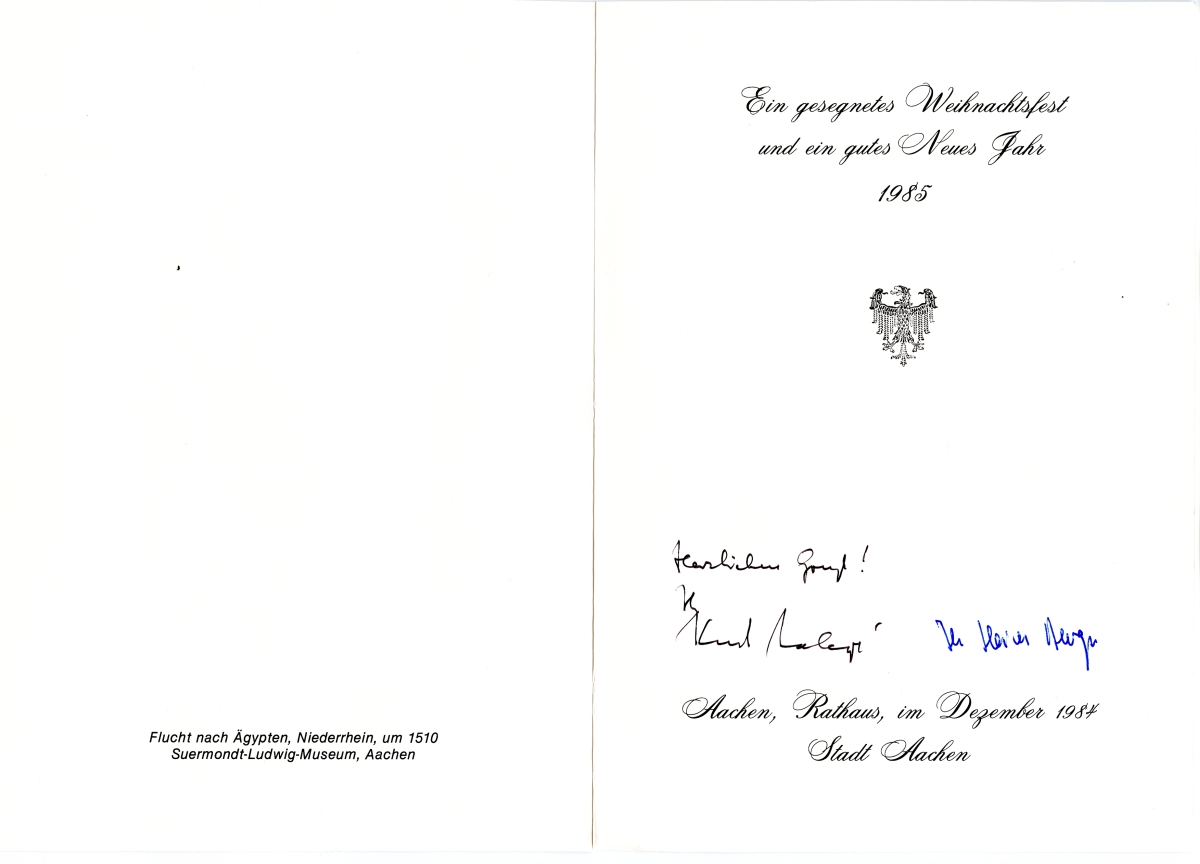 Flucht nach Ägypten, Niederrhein, um 1510
Suermondt-Ludwig-Museum, Aachen
Ein gesegnetes Weihnachtsfest
und ein gutes Neues Jahr
1985
Herzlichen Gruß!
Ihr
Kurt Malangré
Ihr Heiner Berger
Aachen, Rathaus, im Dezember 1984
Stadt Aachen